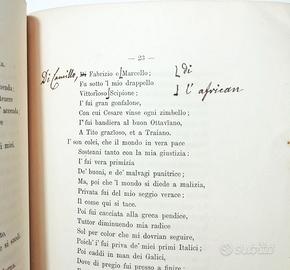 — 23 —
Di Camillo, Fabrizio e Marcello; di
Fu sotto 'l mio drappello
Vittorioso Scipione; l'african
I' fui gran gonfalone,
Con cui Cesare vinse ogni zimbello;
I' fui bandiera al buon Ottaviano,
A Tito grazioso, et a Traiano.
I' son colei, che il mondo in vera pace
Sostenni tanto con la mia giustizia:
I' fui vera primizia
De' buoni, e de' malvagi punitrice;
Ma, poi che 'l mondo si diede a malizia,
Privata fui del mio seggio verace;
Il come qui si tace.
Poi fui cacciata alla greca pendice,
Tuttor diminuendo mia radice
Sol per color che mi dovrian seguire,
Poich' i' fui priva de' miei primi Italici;
Poi caddi in man dei Galici,
Dove di pregio fui presso a finire.
subito.it